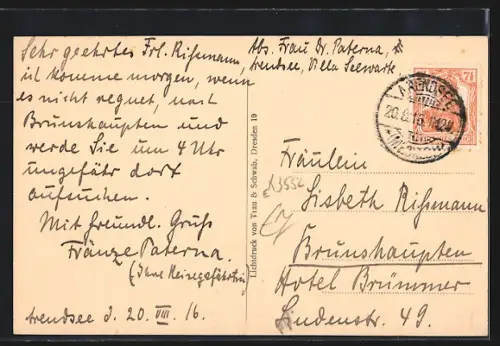 Sehr geehrtes Frl. Rißmann,
ich komme morgen, wenn
es nicht regnet, nach
Brunshaupten und
werde Sie um 4 Uhr
ungefähr dort
aufsuchen.
Mit freundl. Gruß
Fränze Paterna.
(Ihre Reisegefährtin)
Arendsee d. 20. VIII. 16.
Abs. Frau Dr. Paterna,
Arendsee, Villa Seewarte
Lichtdruck von Trau & Schwab, Dresden 19
7½
ARENDSEE
20.8.16
(MECKLB)
Fräulein
Lisbeth Rißmann
Brunshaupten
Hotel Brümmer
Lindenstr. 49.